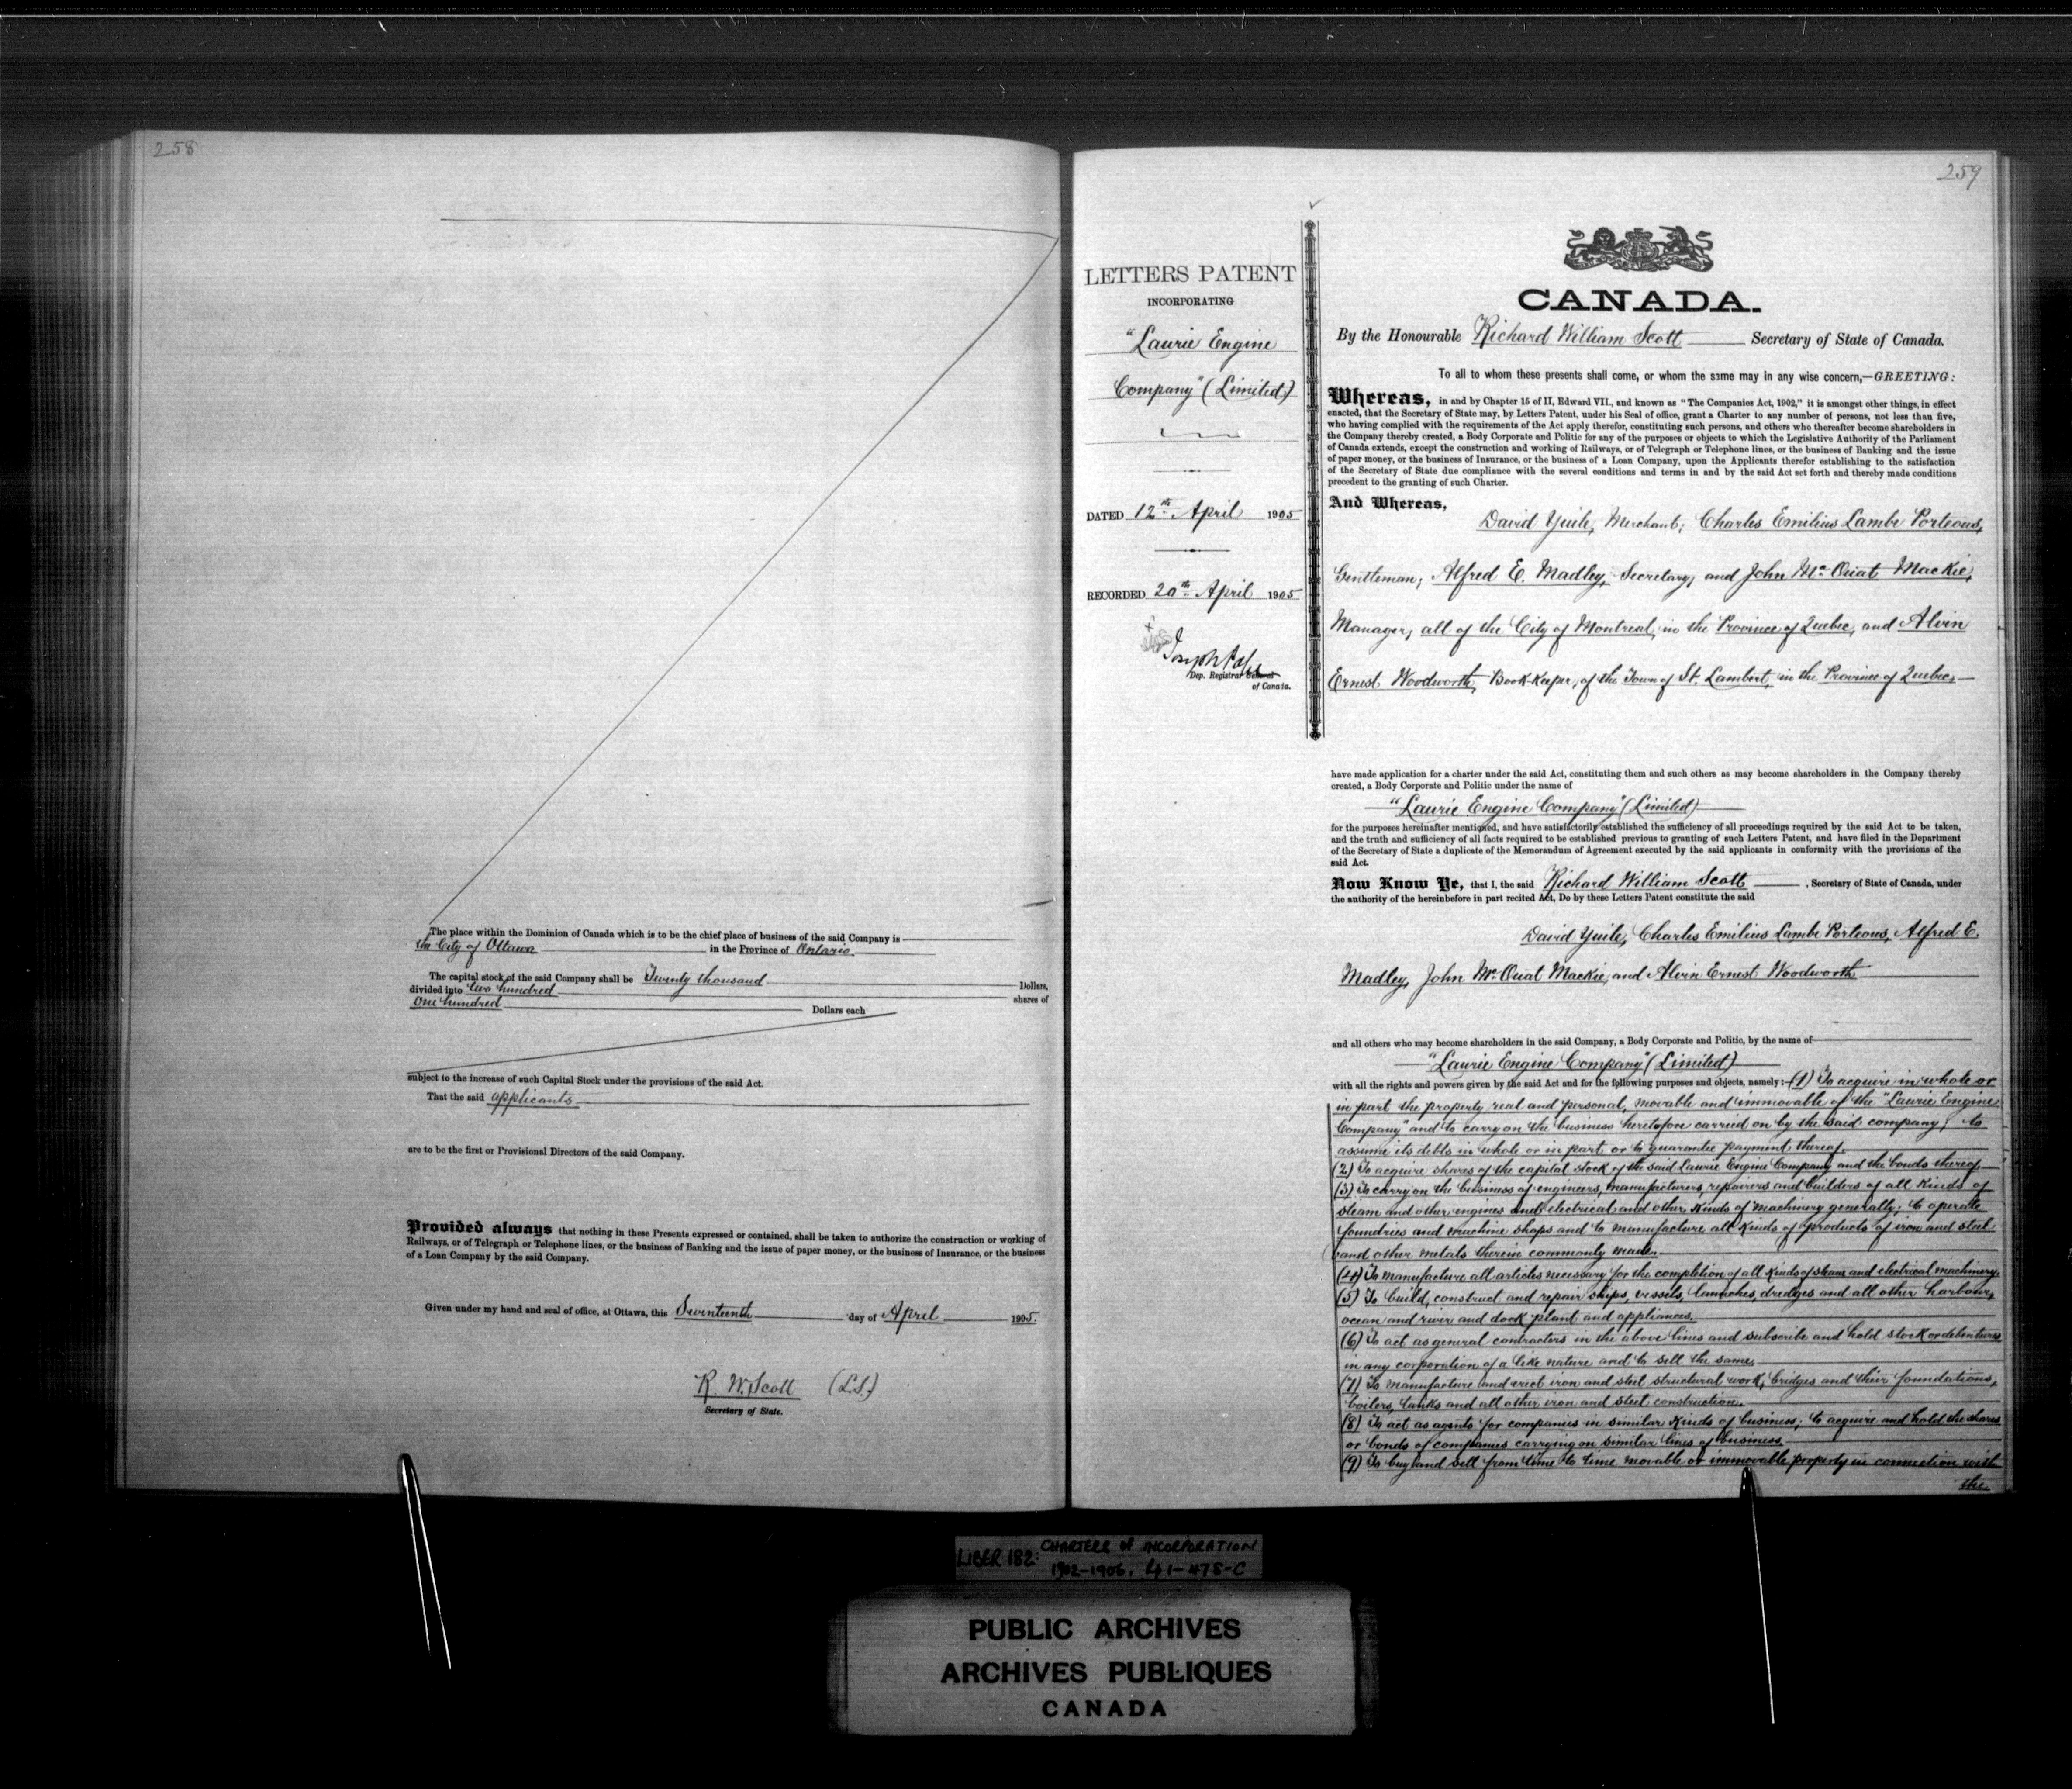 258
The place within the Dominion of Canada which is to be the chief place of business of the said Company is
the City of Ottawa in the Province of Ontario.
The capital stock of the said Company shall be Twenty thousand Dollars,
divided into two hundred shares of
One hundred Dollars each
subject to the increase of such Capital Stock under the provisions of the said Act.
That the said applicants
are to be the first or Provisional Directors of the said Company.
Provided always that nothing in these Presents expressed or contained, shall be taken to authorize the construction or working of
Railways, or of Telegraph or Telephone lines, or the business of Banking and the issue of paper money, or the business of Insurance, or the business
of a Loan Company by the said Company.
Given under my hand and seal of office, at Ottawa, this Seventeenth day of April 1905.
R. W. Scott (L.S.)
Secretary of State.
259
LETTERS PATENT
INCORPORATING
"Laurie Engine
Company" (Limited)
DATED 12th April 1905
RECORDED 20th April 1905
Joseph Pope
Dep. Registrar General
of Canada.
CANADA.
By the Honourable Richard William Scott Secretary of State of Canada.
To all to whom these presents shall come, or whom the same may in any wise concern,—GREETING:
Whereas, in and by Chapter 15 of II, Edward VII., and known as "The Companies Act, 1902," it is amongst other things, in effect
enacted, that the Secretary of State may, by Letters Patent, under his Seal of office, grant a Charter to any number of persons, not less than five,
who having complied with the requirements of the Act apply therefor, constituting such persons, and others who thereafter become shareholders in
the Company thereby created, a Body Corporate and Politic for any of the purposes or objects to which the Legislative Authority of the Parliament
of Canada extends, except the construction and working of Railways, or of Telegraph or Telephone lines, or the business of Banking and the issue
of paper money, or the business of Insurance, or the business of a Loan Company, upon the Applicants therefor establishing to the satisfaction
of the Secretary of State due compliance with the several conditions and terms in and by the said Act set forth and thereby made conditions
precedent to the granting of such Charter.
And Whereas,
David Yuile, Merchant; Charles Emilius Lambe Porteous,
Gentleman; Alfred E. Madley, Secretary, and John Mc Ouat Mackie,
Manager, all of the City of Montreal, in the Province of Quebec, and Alvin
Ernest Woodworth, Book-Keeper, of the Town of St. Lambert, in the Province of Quebec,
have made application for a charter under the said Act, constituting them and such others as may become shareholders in the Company thereby
created, a Body Corporate and Politic under the name of
"Laurie Engine Company" (Limited)
for the purposes hereinafter mentioned, and have satisfactorily established the sufficiency of all proceedings required by the said Act to be taken,
and the truth and sufficiency of all facts required to be established previous to granting of such Letters Patent, and have filed in the Department
of the Secretary of State a duplicate of the Memorandum of Agreement executed by the said applicants in conformity with the provisions of the
said Act.
Now Know Ye, that I, the said Richard William Scott, Secretary of State of Canada, under
the authority of the hereinbefore in part recited Act, Do by these Letters Patent constitute the said
David Yuile, Charles Emilius Lambe Porteous, Alfred E.
Madley, John Mc Ouat Mackie, and Alvin Ernest Woodworth
and all others who may become shareholders in the said Company, a Body Corporate and Politic, by the name of
"Laurie Engine Company" (Limited)
with all the rights and powers given by the said Act and for the following purposes and objects, namely:- (1) To acquire in whole or
in part the property real and personal, movable and immovable of the "Laurie Engine
Company" and to carry on the business heretofore carried on by the said company; to
assume its debts in whole or in part or to guarantee payment thereof.
(2) To acquire shares of the capital stock of the said Laurie Engine Company and the bonds thereof
(3) To carry on the business of engineers, manufacturers, repairers and builders of all kinds of
steam and other engines and electrical and other kinds of machinery generally; to operate
foundries and machine shops and to manufacture all kinds of products of iron and steel
and other metals therein commonly made.
(4) To manufacture all articles necessary for the completion of all kinds of steam and electrical machinery.
(5) To build, construct and repair ships, vessels, launches, dredges and all other harbour,
ocean and river and dock plant and appliances.
(6) To act as general contractors in the above lines and subscribe and hold stock or debentures
in any corporation of a like nature and to sell the same.
(7) To manufacture and erect iron and steel structural work, bridges and their foundations,
boilers, tanks and all other iron and steel construction.
(8) To act as agents for companies in similar kinds of business; to acquire and hold the shares
or bonds of companies carrying on similar lines of business.
(9) To buy and sell from time to time movable or immovable property in connection with
the
LIBER 182: CHARTERS of INCORPORATION
1902-1906. 41-478-C
PUBLIC ARCHIVES
ARCHIVES PUBLIQUES
CANADA